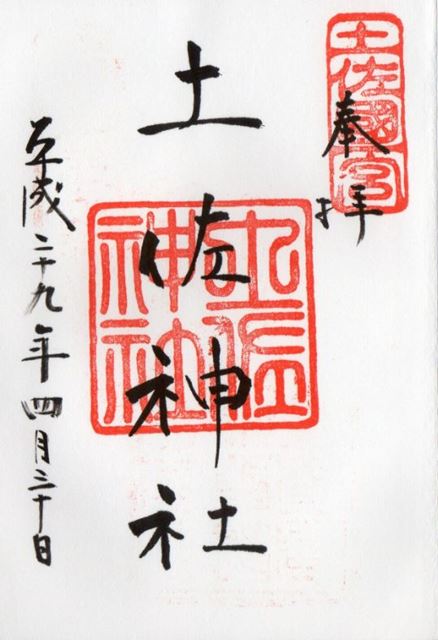 土佐國一宮
奉拝
土佐神社
土佐神社
平成二十九年四月三十日